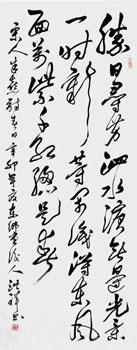 勝日尋芳泗水濱無邊光景
一時新等閑識得東風
面萬紫千紅總是春
宋人朱熹詩春日辛卯年夏東鄉人洪祥書